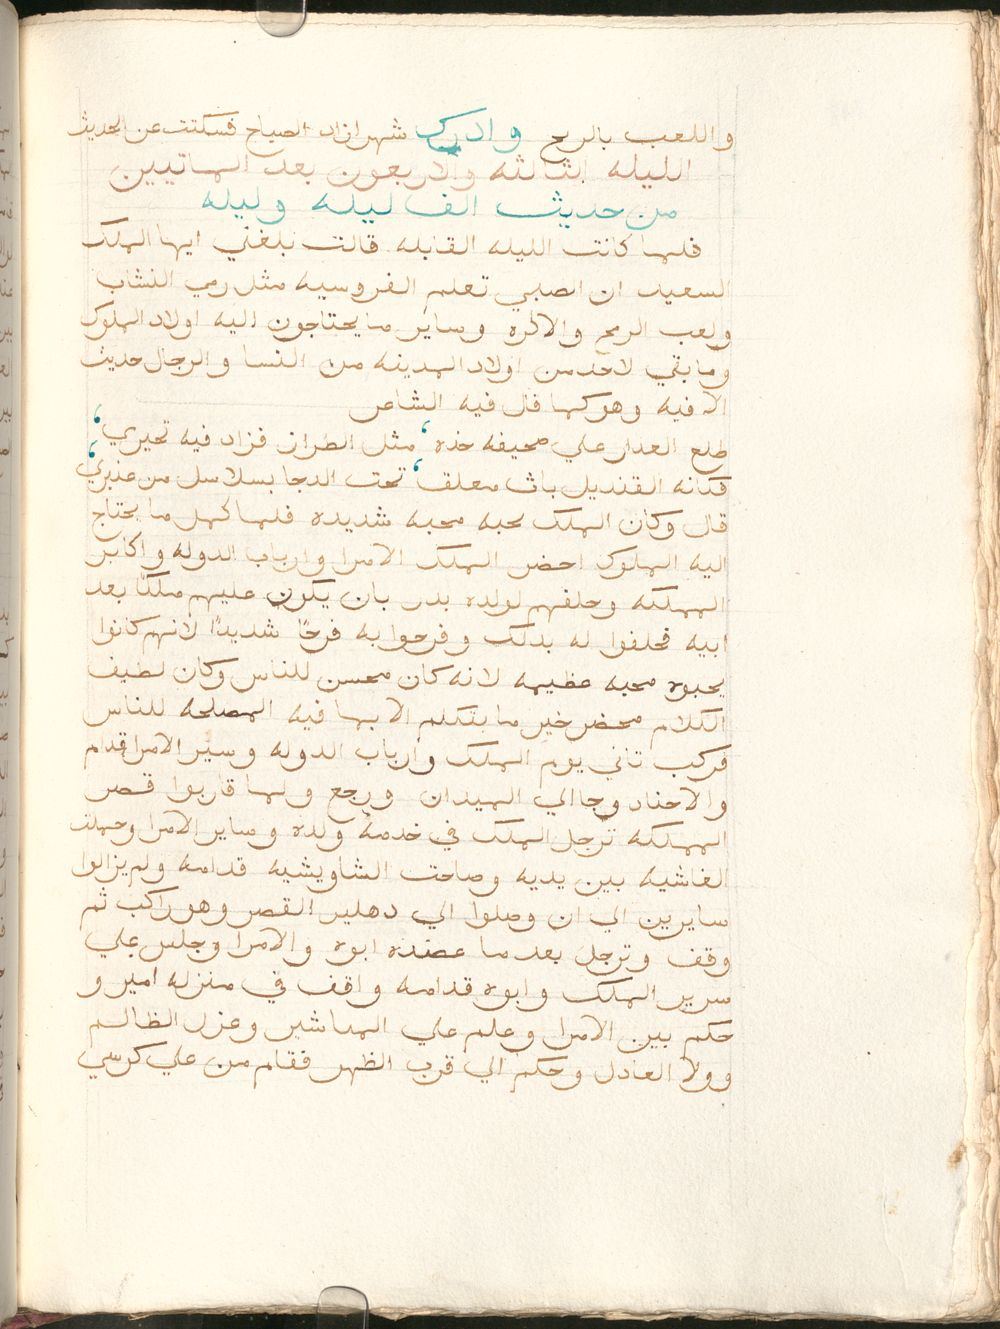 واللعب بالرمح وادرك شهرازاد الصباح فسكتت عن الحديث
الليله الثالثه والاربعون بعد الماتيين
من حديث الف ليله وليله
فلما كانت الليله القابله قالت بلغني ايها الملك
السعيد ان الصبي تعلم الفروسيه مثل رمي النشاب
ولعب الرمح والاكره وساير ما يحتاجون اليه اولاد الملوك
وما بقي لاحد من اولاد المدينه من النسا والرجال حديث
الا فيه وهو كما قال فيه الشاعر
طلع العدار علي صحيفه خده مثل الطراز فزاد فيه تحيري
فكانه القنديل بات معلف تحت الدجا بسلاسل من عنبري
قال وكان الملك يحبه محبه شديده فلما كمل ما يحتاج
اليه الملوك احضر الملك الامرا وارباب الدوله واكابر
المملكه وحلفهم لولده بدر بان يكون عليهم ملكًا بعد
ابيه فحلفوا له بدلك وفرحوا به فرحًا شديدًا لانهم كانوا
يحبوه محبه عظيمه لانه كان محسن للناس وكان لطيف
الكلام محضر خير ما يتكلم الا بما فيه المصلحه للناس
فركب تاني يوم الملك وارباب الدوله وسير الامرا قدام
والاجناد وجا الي الميدان ورجع ولما قاربوا قصر
المملكه ترجل الملك في خدمة ولده وساير الامرا وحملت
الغاشيه بين يديه وصاحت الشاويشيه قدامه ولم يزالوا
سايرين الي ان وصلوا الي دهليز القصر وهو راكب ثم
وقف وترجل بعد ما عضده ابوه والامرا وجلس علي
سرير الملك وابوه قدامه واقف في منزله امير و
حكم بين الامرا وعلم علي المباشير وعزل الظالم
وولا العادل وحكم الي قرب الظهر فقام من علي كرسي